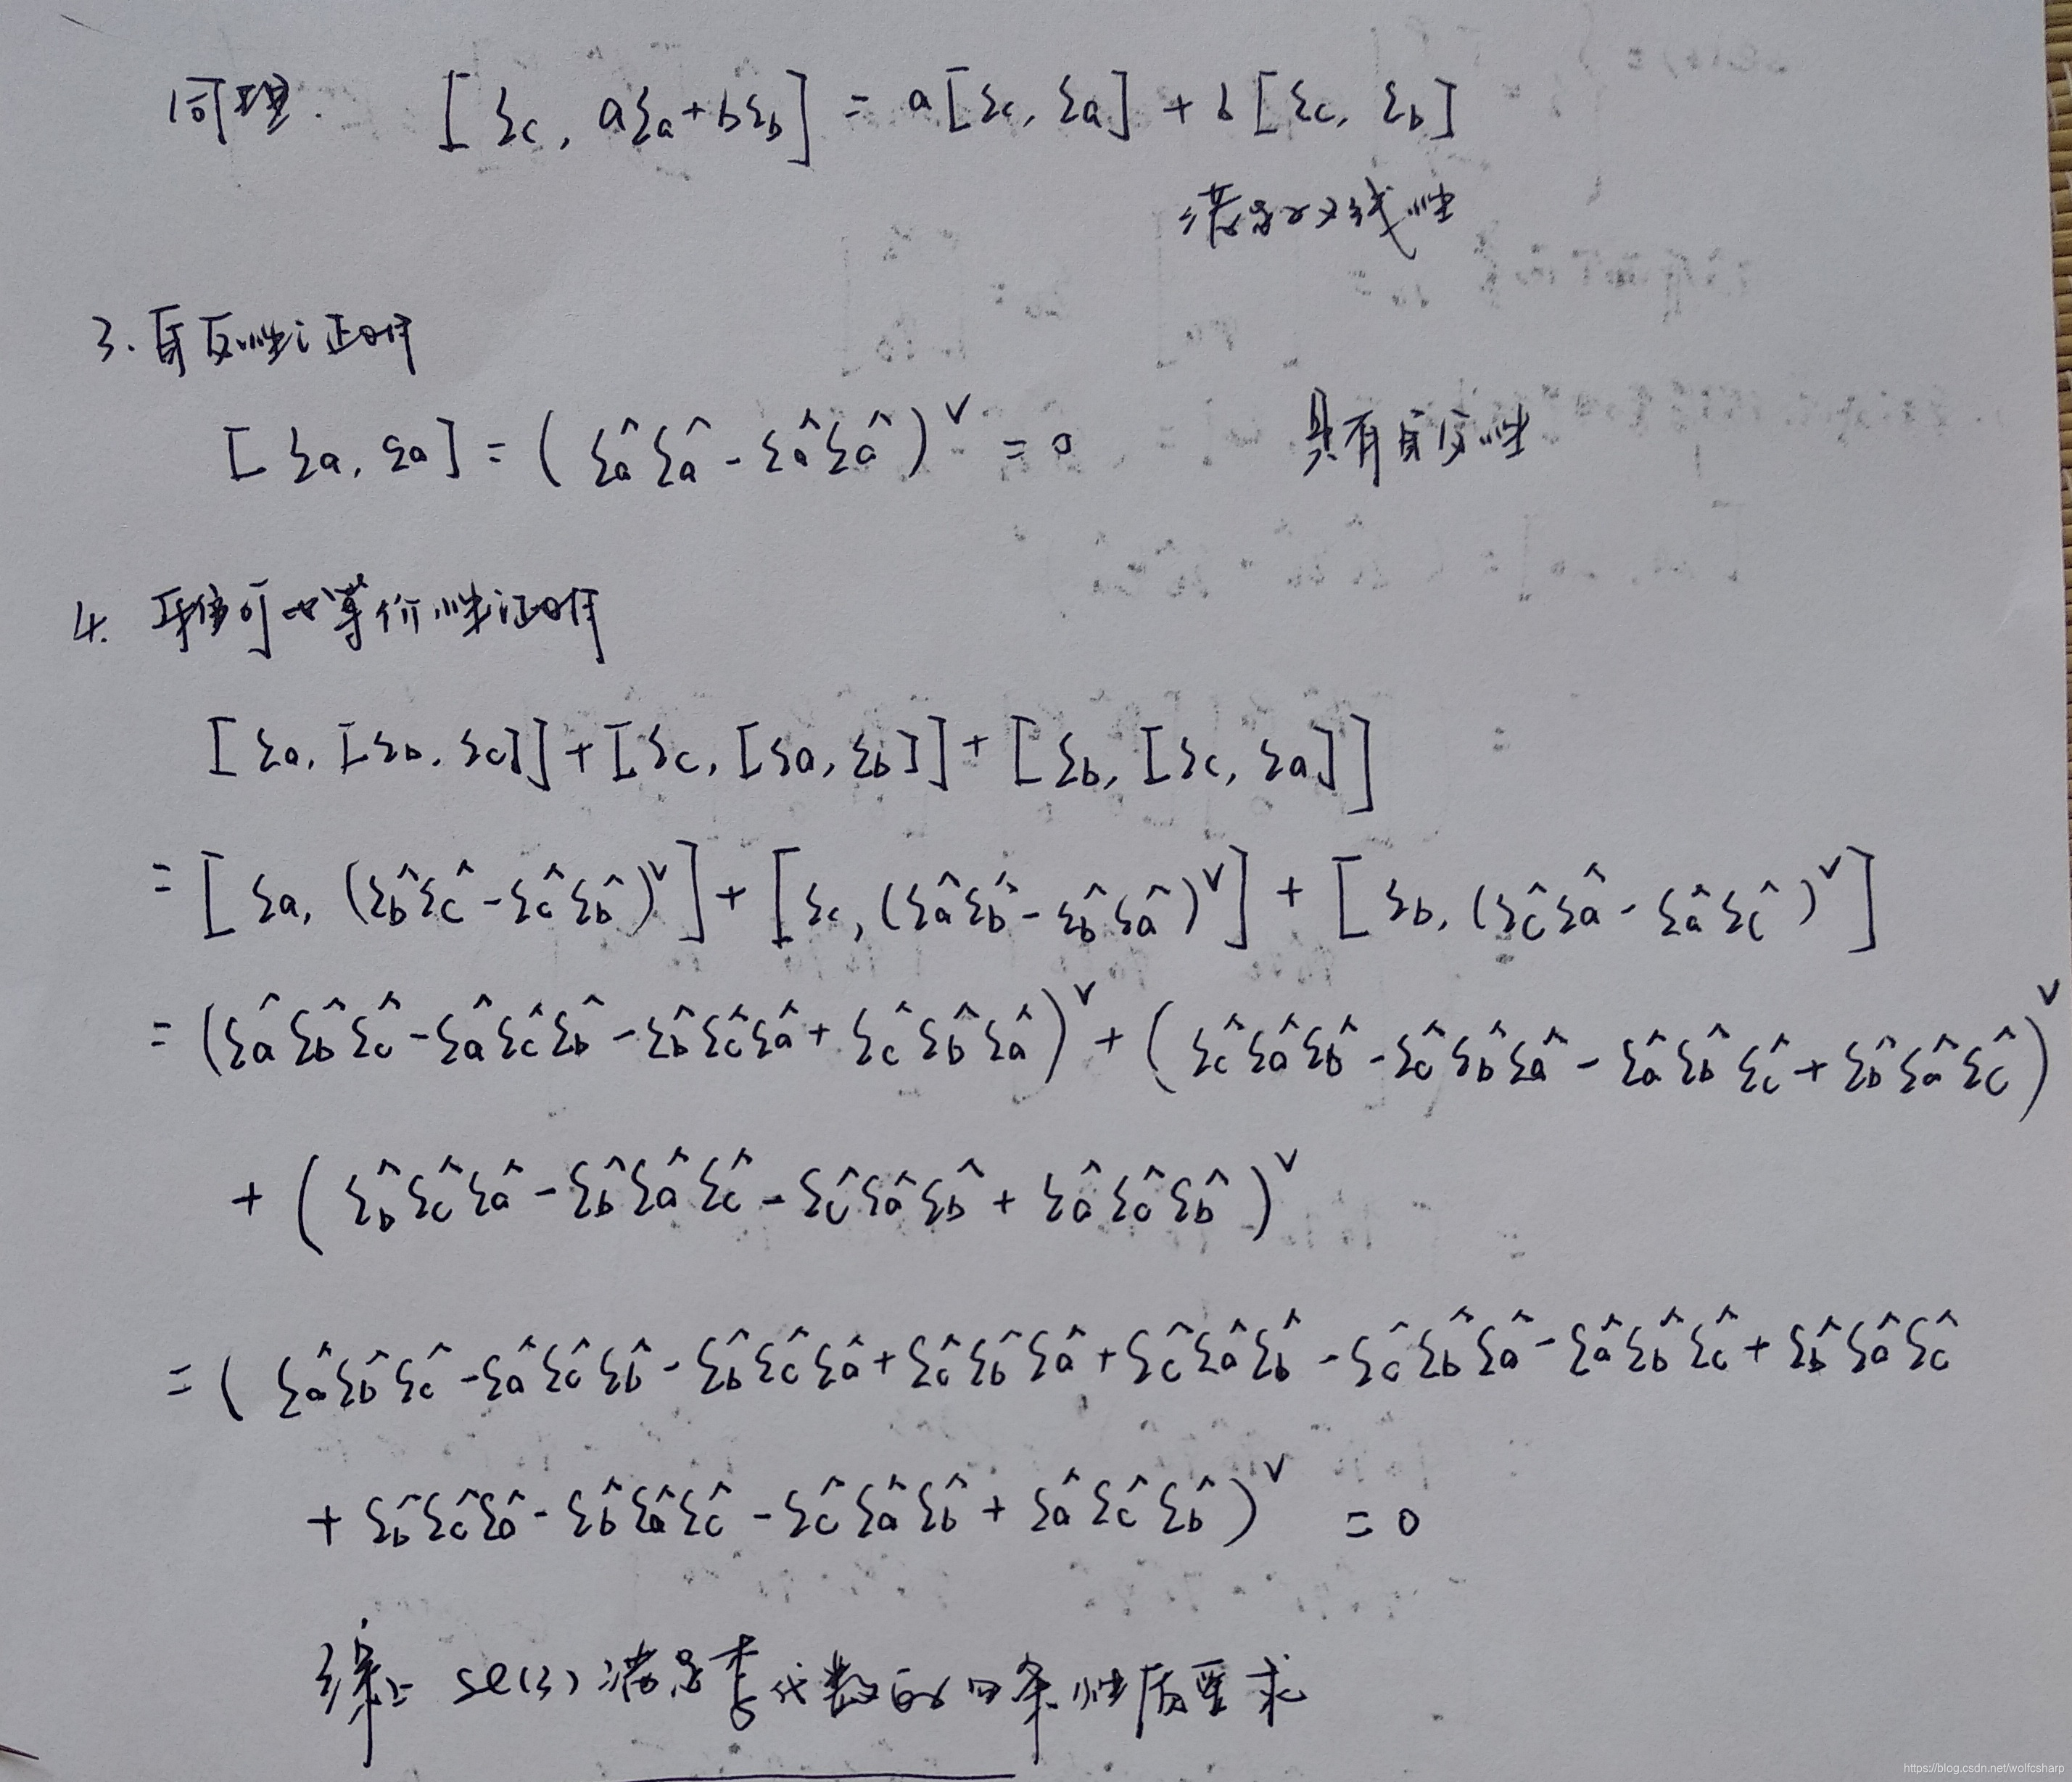 同理. [ξc, aξa+bξb] = a[ξc, ξa] + b[ξc, ξb]
满足双线性
3. 自反性证明
[ξa, ξa] = (ξa^ξa^ - ξa^ξa^)^∨ = 0 具有自反性
4. 雅可比等价性证明
[ξa, [ξb, ξc]] + [ξc, [ξa, ξb]] + [ξb, [ξc, ξa]]
= [ξa, (ξb^ξc^ - ξc^ξb^)^∨] + [ξc, (ξa^ξb^ - ξb^ξa^)^∨] + [ξb, (ξc^ξa^ - ξa^ξc^)^∨]
= (ξa^ξb^ξc^ - ξa^ξc^ξb^ - ξb^ξc^ξa^ + ξc^ξb^ξa^)^∨ + (ξc^ξa^ξb^ - ξc^ξb^ξa^ - ξa^ξb^ξc^ + ξb^ξa^ξc^)^∨
+ (ξb^ξc^ξa^ - ξb^ξa^ξc^ - ξc^ξa^ξb^ + ξa^ξc^ξb^)^∨
= (ξa^ξb^ξc^ - ξa^ξc^ξb^ - ξb^ξc^ξa^ + ξc^ξb^ξa^ + ξc^ξa^ξb^ - ξc^ξb^ξa^ - ξa^ξb^ξc^ + ξb^ξa^ξc^
+ ξb^ξc^ξa^ - ξb^ξa^ξc^ - ξc^ξa^ξb^ + ξa^ξc^ξb^)^∨ = 0
综上 se(3) 满足李代数的四条性质要求
https://blog.csdn.net/wolfcsharp